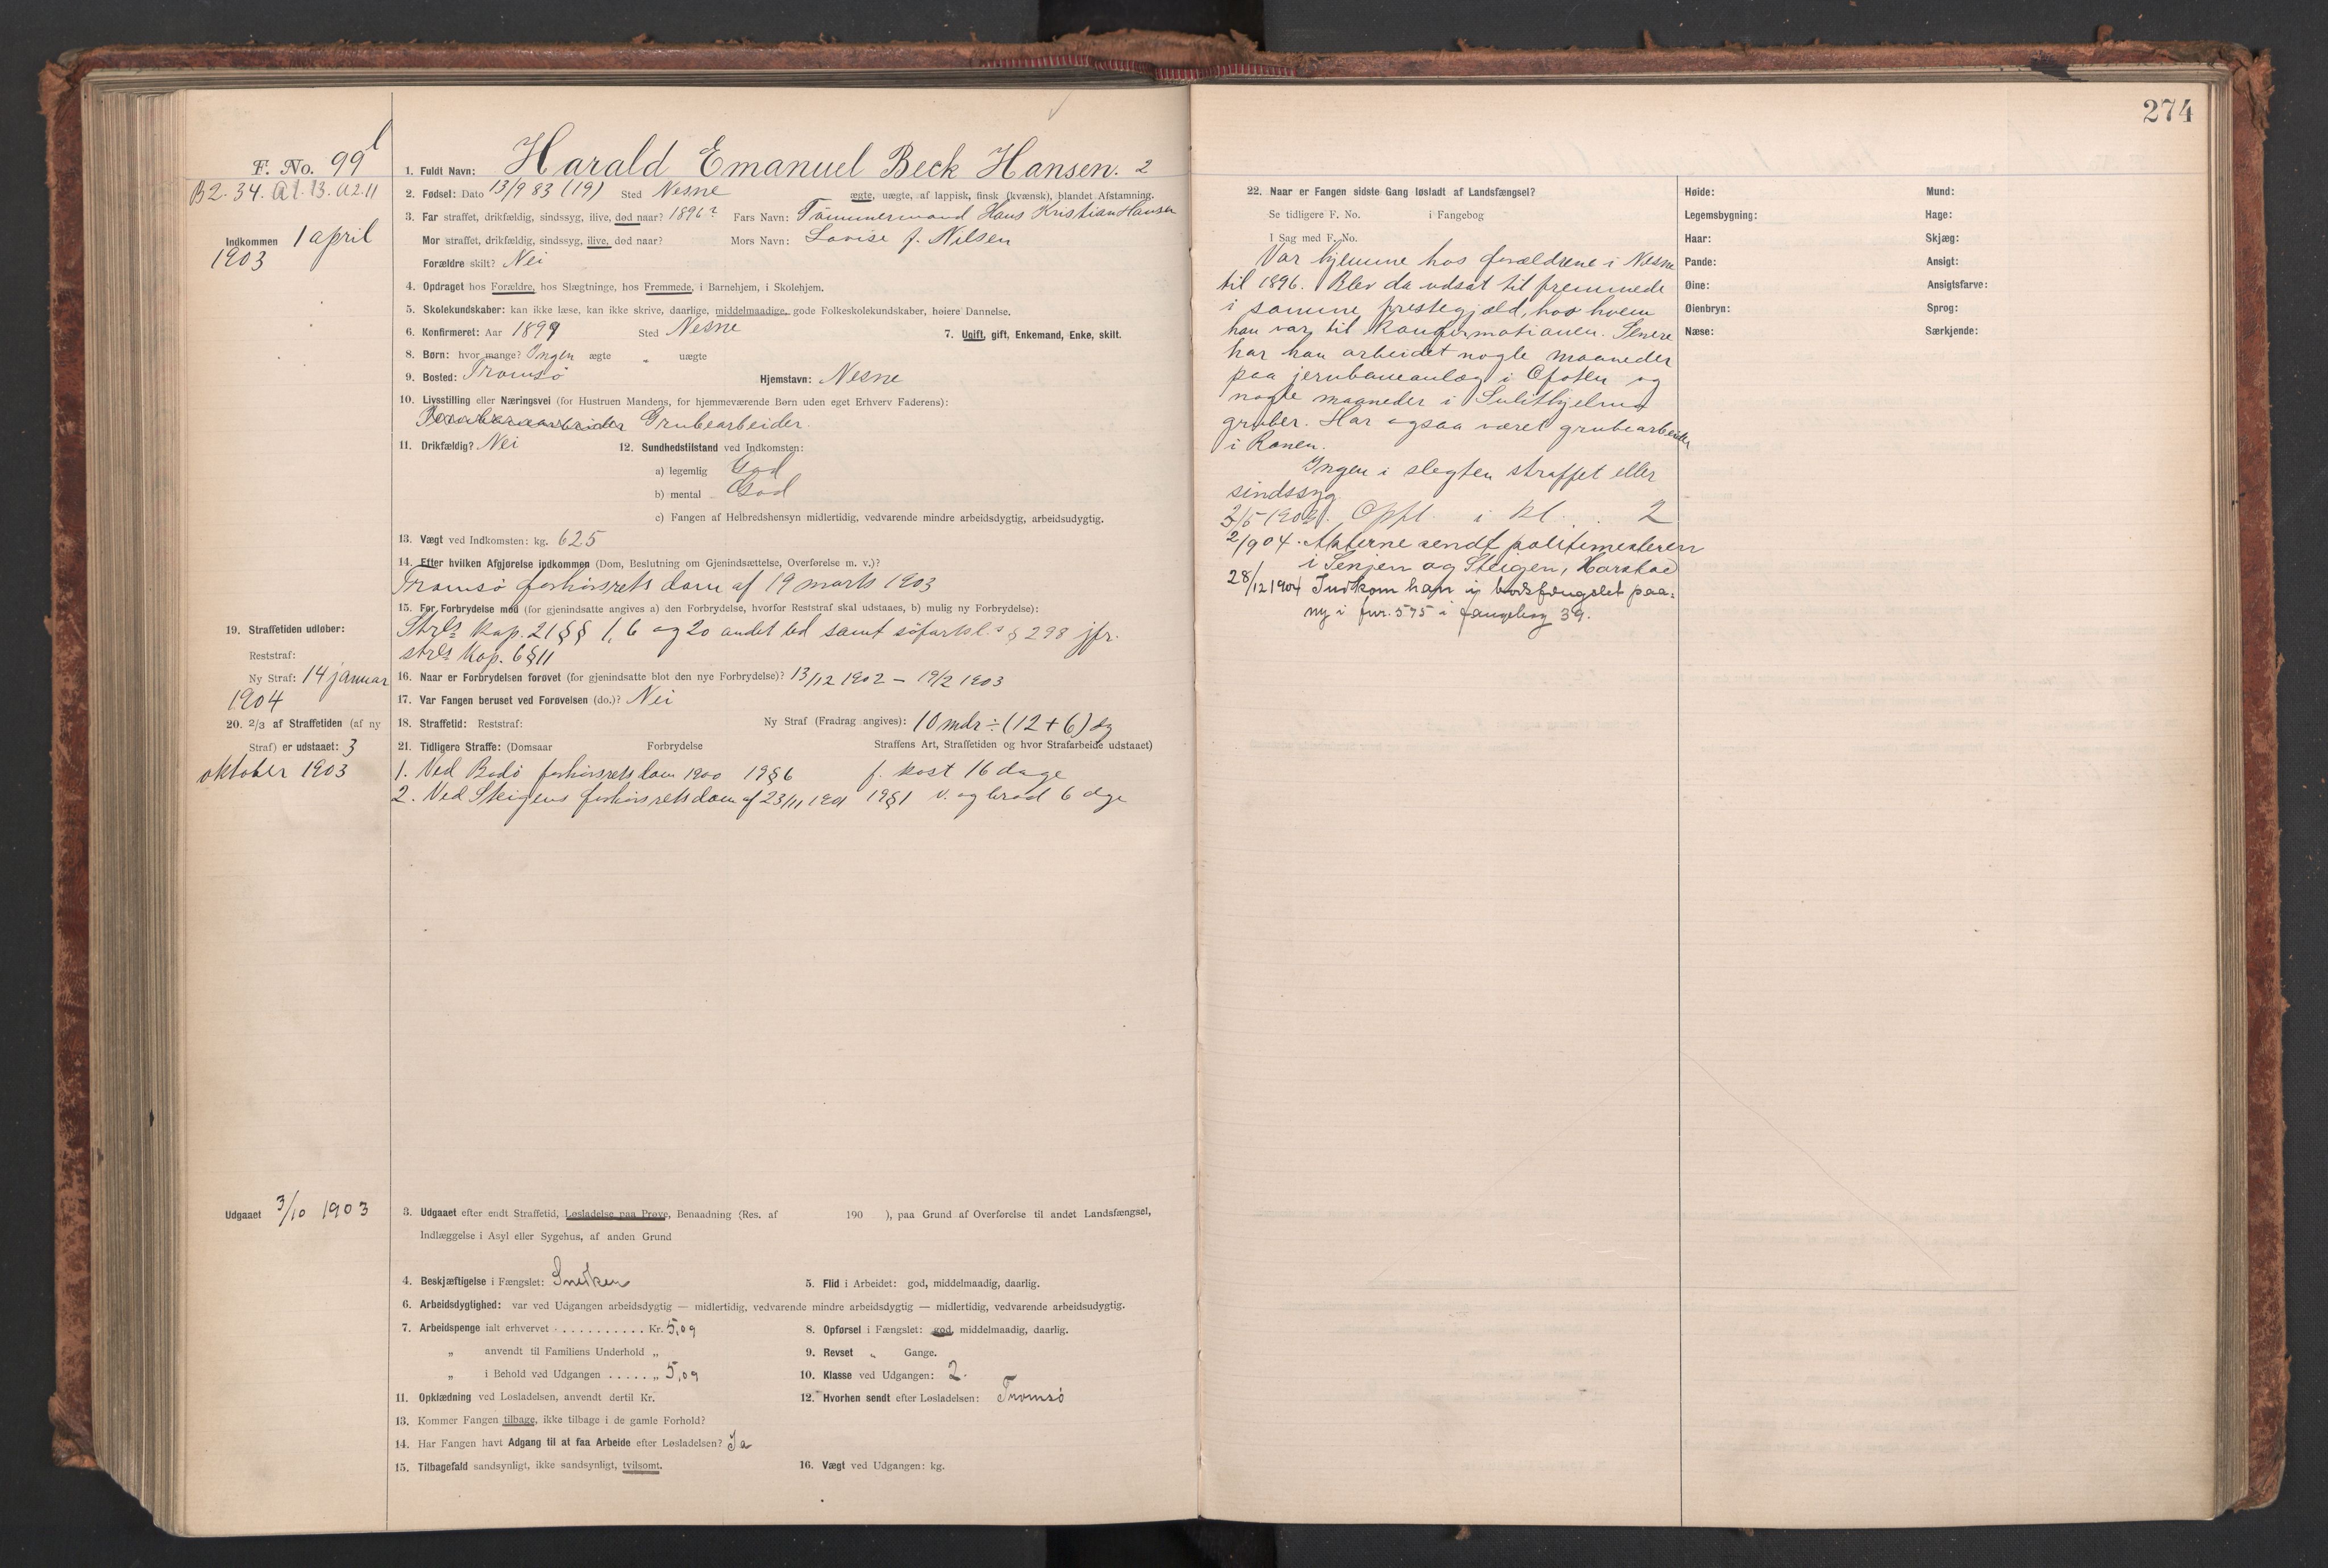 F. No. 99
B2. 34. A1. 13. A2. 11
Indkommen 1 april
1903
1. Fuldt Navn: Harald Emanuel Beck Hansen. 2
2. Fødsel: Dato 13/9 83 (19) Sted Nesne ægte, uægte, af lappisk, finsk (kvænsk), blandet Afstamning.
3. Far straffet, drikfældig, sindssyg, ilive, død naar? 1896? Fars Navn: Tømmermand Hans Kristian Hansen
Mor straffet, drikfældig, sindssyg, ilive, død naar? Mors Navn: Lovise f. Nilsen
Forældre skilt? Nei
4. Opdraget hos Forældre, hos Slægtninge, hos Fremmede, i Barnehjem, i Skolehjem.
5. Skolekundskaber: kan ikke læse, kan ikke skrive, daarlige, middelmaadige, gode Folkeskolekundskaber, høiere Dannelse.
6. Konfirmeret: Aar 1899 Sted Nesne 7. Ugift, gift, Enkemand, Enke, skilt.
8. Børn: hvor mange? Ingen ægte „ uægte
9. Bosted: Tromsø Hjemstavn: Nesne
10. Livsstilling eller Næringsvei (for Hustruen Mandens, for hjemmeværende Børn uden eget Erhverv Faderens):
Grubearbeider.
11. Drikfældig? Nei 12. Sundhedstilstand ved Indkomsten:
a) legemlig God
b) mental God
c) Fangen af Helbredshensyn midlertidig, vedvarende mindre arbeidsdygtig, arbeidsudygtig.
13. Vægt ved Indkomsten: kg. 625
14. Efter hvilken Afgjørelse indkommen (Dom, Beslutning om Gjenindsættelse, Overførelse m. v.)?
Tromsø forhørsrets dom af 19 marts 1903
15. For Forbrydelse mod (for gjenindsatte angives a) den Forbrydelse, hvorfor Reststraf skal udstaaes, b) mulig ny Forbrydelse):
Strls kap. 21 §§ 1, 6 og 20 andet led samt søfartsl.s § 298 jfr.
strls Kap. 6 § 11
16. Naar er Forbrydelsen forøvet (for gjenindsatte blot den nye Forbrydelse)? 13/12 1902 – 19/2 1903
17. Var Fangen beruset ved Forøvelsen (do.)? Nei
18. Straffetid: Reststraf: Ny Straf (Fradrag angives): 10 mdr ÷ (12 + 6) dg
19. Straffetiden udløber:
Reststraf:
Ny Straf: 14 januar
1904
20. 2/3 af Straffetiden (af ny
Straf) er udstaaet: 3
oktober 1903
21. Tidligere Straffe: (Domsaar Forbrydelse Straffens Art, Straffetiden og hvor Strafarbeide udstaaet)
1. Ved Bodø forhørsrets dom 1900 19 § 6 f. kost 16 dage
2. Ved Steigens forhørsrets dom af 23/11 1901 19 § 1 v. og brød 6 dge
Udgaaet 3/10 1903
3. Udgaaet efter endt Straffetid, Løsladelse paa Prøve, Benaadning (Res. af 190 ), paa Grund af Overførelse til andet Landsfængsel,
Indlæggelse i Asyl eller Sygehus, af anden Grund
4. Beskjæftigelse i Fængslet: Snekker 5. Flid i Arbeidet: god, middelmaadig, daarlig.
6. Arbeidsdygtighed: var ved Udgangen arbeidsdygtig — midlertidig, vedvarende mindre arbeidsdygtig — midlertidig, vedvarende arbeidsudygtig.
7. Arbeidspenge ialt erhvervet . . . . . . . . . . . Kr. 5,09 8. Opførsel i Fængslet: god, middelmaadig, daarlig.
„ anvendt til Familiens Underhold „ 9. Revset „ Gange.
„ i Behold ved Udgangen . . . . . „ 5,09 10. Klasse ved Udgangen: 2.
11. Opklædning ved Løsladelsen, anvendt dertil Kr. 12. Hvorhen sendt efter Løsladelsen: Tromsø
13. Kommer Fangen tilbage, ikke tilbage i de gamle Forhold?
14. Har Fangen havt Adgang til at faa Arbeide efter Løsladelsen? Ja
15. Tilbagefald sandsynligt, ikke sandsynligt, tvilsomt. 16. Vægt ved Udgangen: kg.
274
22. Naar er Fangen sidste Gang løsladt af Landsfængsel?
Se tidligere F. No. i Fangebog
I Sag med F. No.
Var hjemme hos forældrene i Nesne
til 1896. Blev da udsat til fremmede
i samme prestegjæld, hos hvem
han var til konfirmationen. Senere
har han arbeidet nogle maaneder
paa jernbaneanlæg i Ofoten og
nogle maaneder i Sulithjelma
gruber. Har ogsaa været grubearbeider
i Ranen.
Ingen i slegten straffet eller
sindssyg.
2/5-1903. Opfl. i kl. . 2
2/904. Akterne sendt politimesteren
i Senjen og Steigen, Harstad
28/12 1904 Indkom han i bodsfængslet paa-
ny i fnr. 575 i fangebog 39.
Høide: Mund:
Legemsbygning: Hage:
Haar: Skjæg:
Pande: Ansigt:
Øine: Ansigtsfarve:
Øienbryn: Sprog:
Næse: Særkjende: